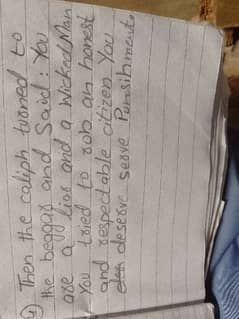 ① Then the caliph turned to
the beggar and said: You
are a liar and a wicked Man
You tried to rob an honest
and respectable citizen You
deserve serve Punsihments